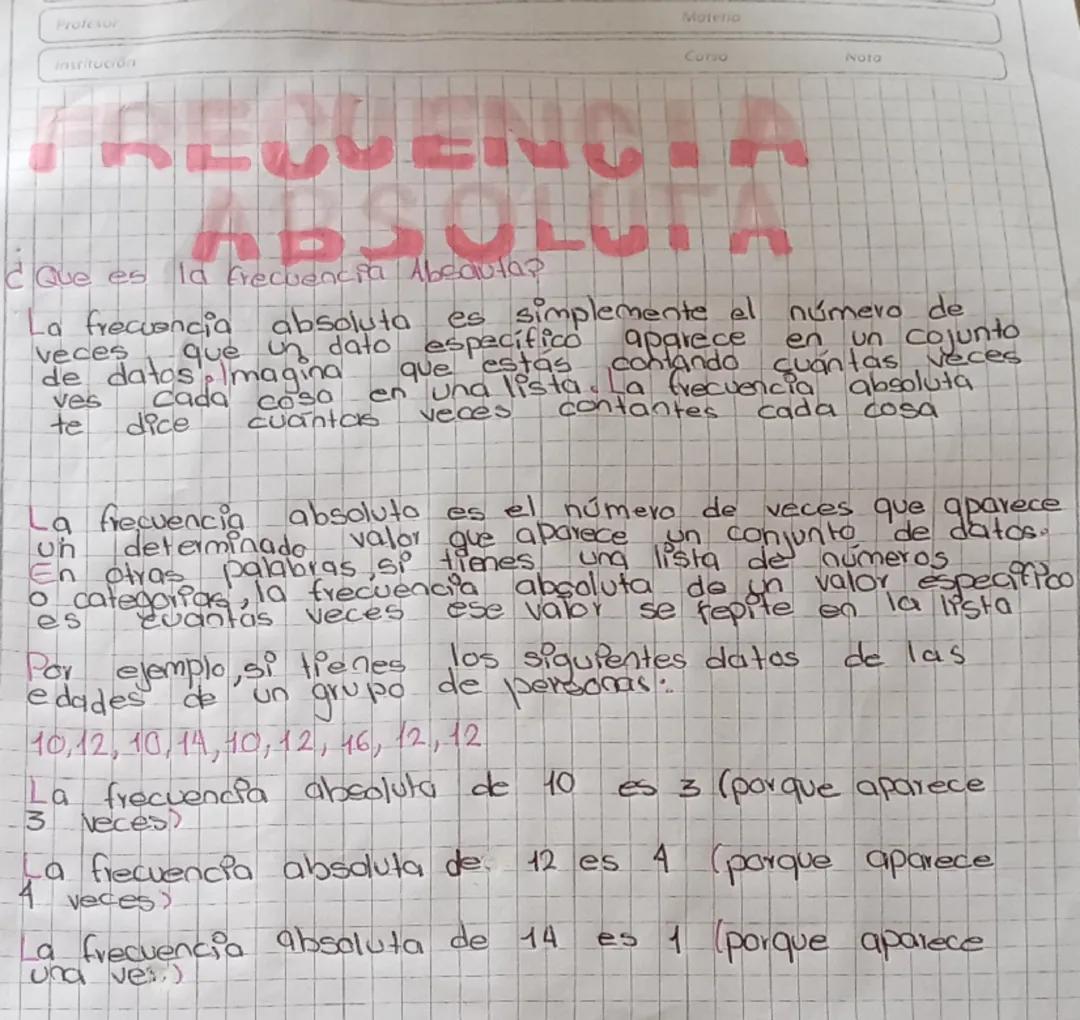 Profesor Materia
Institución Curso Nota
FRECUENCIA
ABSOLUTA
¿Que es la frecuencia Absouta?
La frecuencia absoluta es simplemente el número de
veces que un dato especifico aparece en un cojunto
de datos. Imagina que estás contando cuántas veces
ves cada cosa en una lista. La frecuencia absoluta
te dice cuántas veces contantes cada cosa
La frecuencia absoluta es el número de veces que aparece
un determinado valor que aparece un conjunto de datos.
En otras palabras, si tienes una lista de números
o categorias, la frecuencia absoluta de un valor especifico
es cuantas veces ese valor se repite en la lista
Por ejemplo, si tienes los siguientes datos de las
edades de un grupo de personas:
10, 12, 10, 14, 10, 12, 16, 12, 12
La frecuencia absoluta de 10 es 3 (porque aparece
3 veces)
La frecuencia absoluta de 12 es 4 (porque aparece
4 veces)
La frecuencia absoluta de 14 es 1 (porque aparece
una vez)